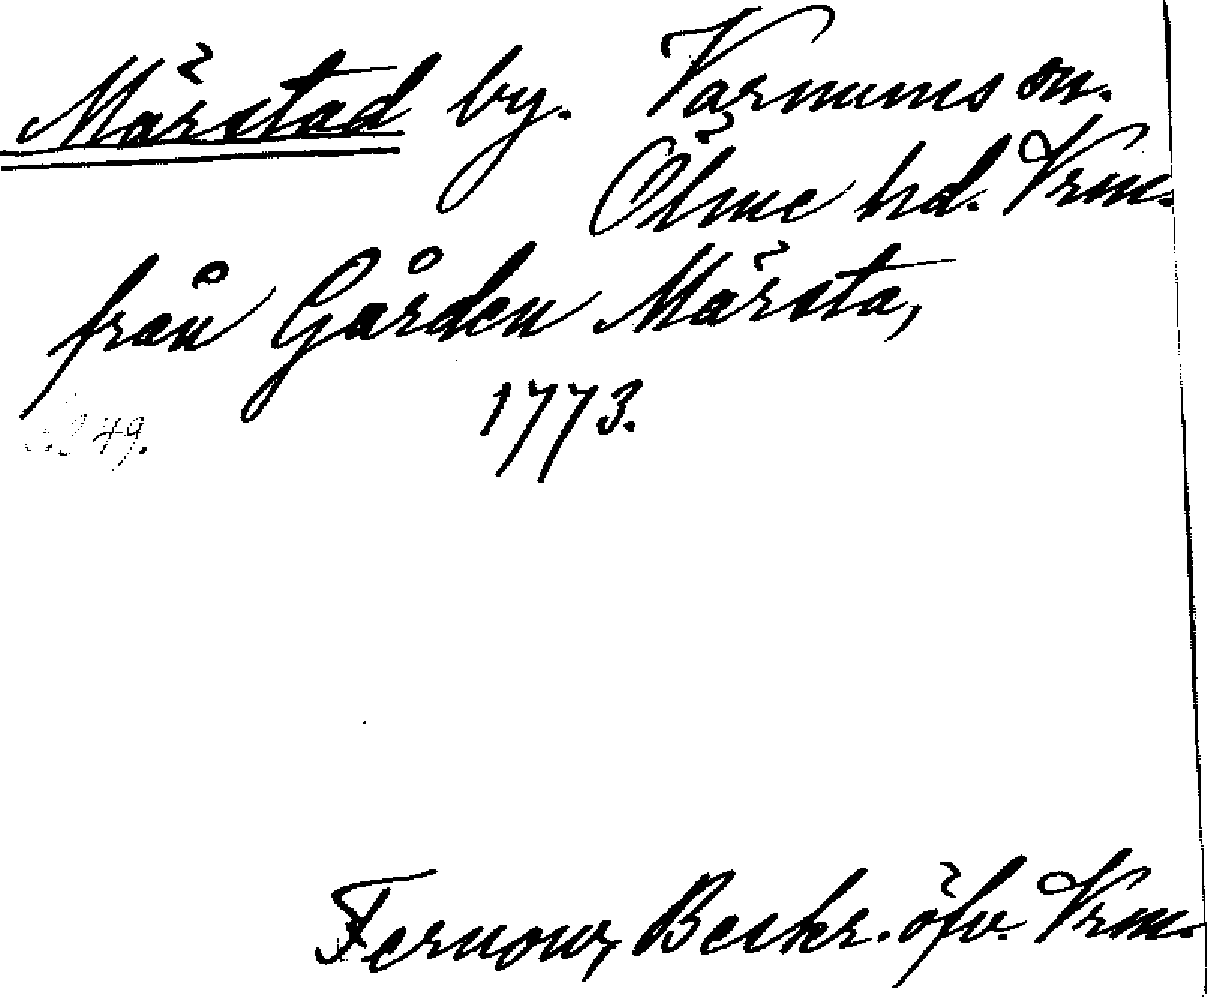 Märstad by. Varnums sn.
Ölme hd. Vrm.
från Gården Märsta,
1773.
s. 249.
Fernow, Beskr. öfv. Vrm.